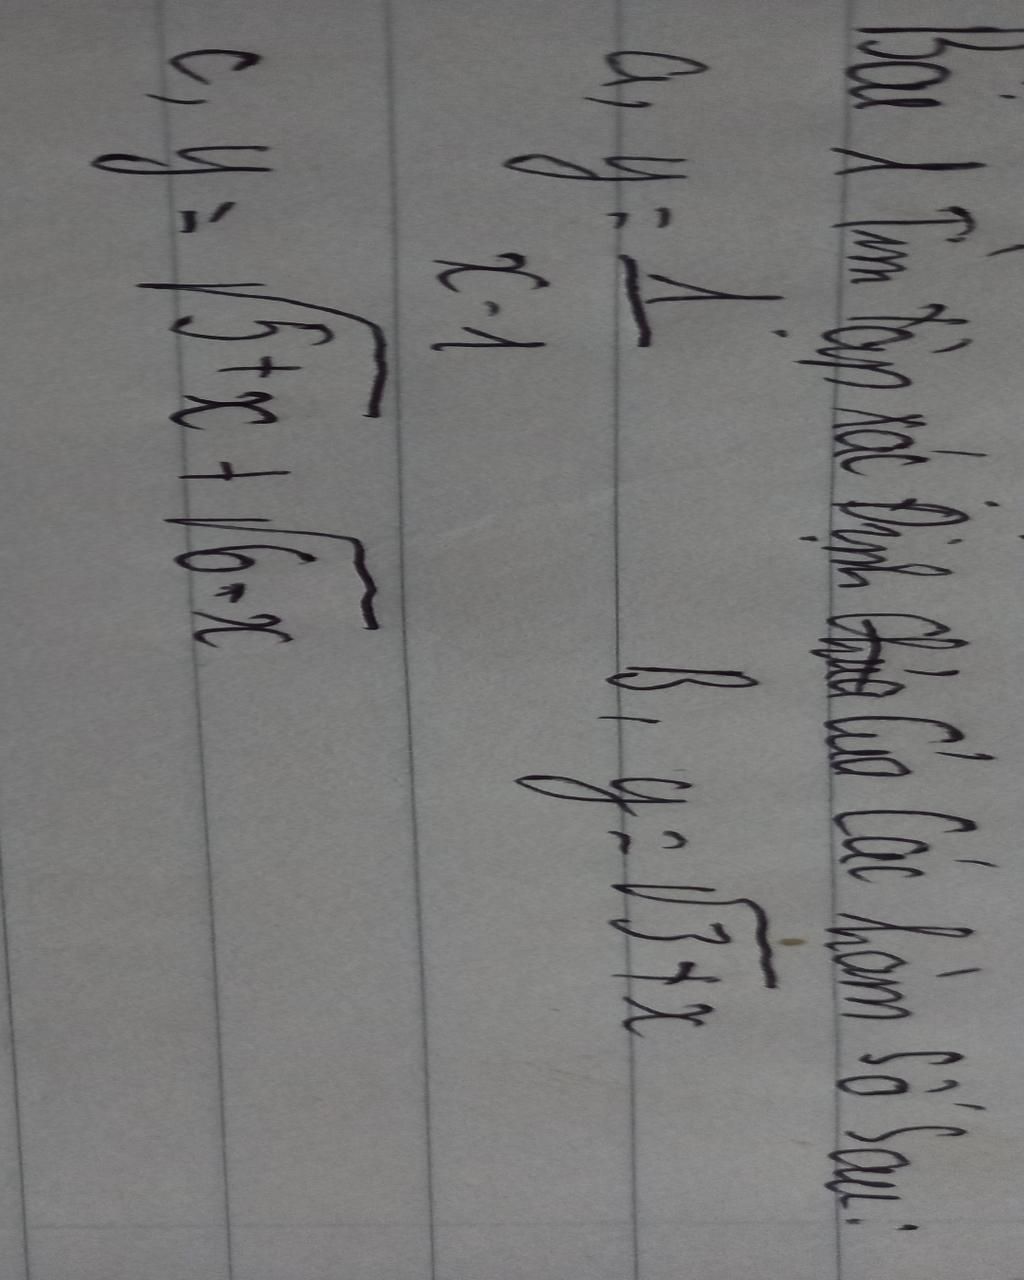 Bài 1 Tìm tập xác định của các hàm số sau:
a, y = 1 b, y = √3+x
x-1
c, y = √5+x + √6-x